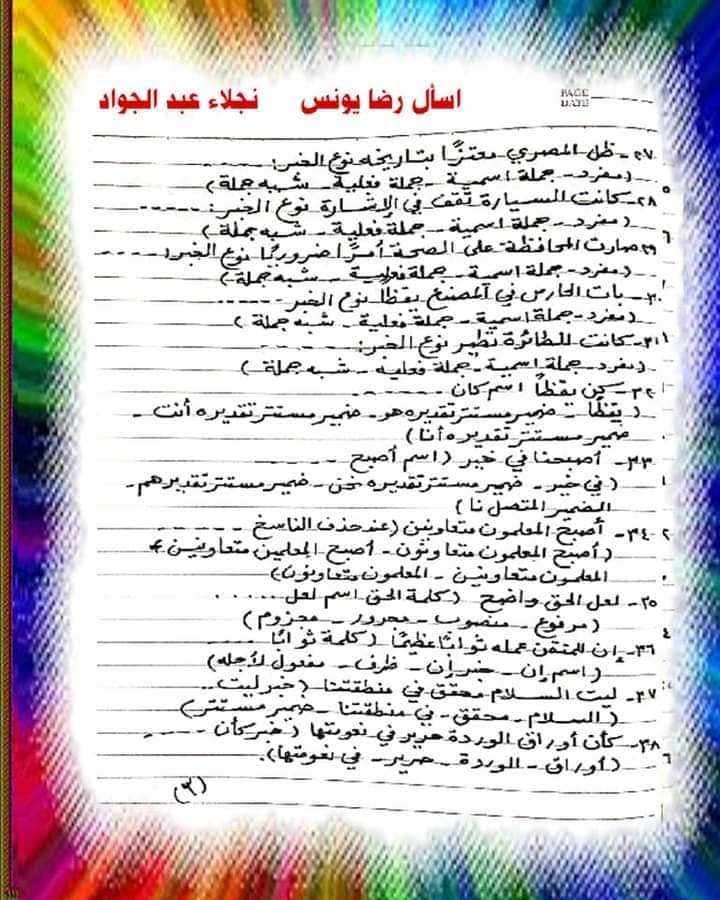 اسأل رضا يونس نجلاء عبد الجواد
PAGE
DATE
٢٧- ظل المصري معتزًا بتاريخه نوع الخبر: -----
(مفرد - جملة اسمية - جملة فعلية - شبه جملة)
٢٨- كانت السيارة تقف في الإشارة نوع الخبر: -----
(مفرد - جملة اسمية - جملة فعلية - شبه جملة)
٢٩- صارت المحافظة على الصحة أمرًا ضروريًا نوع الخبر: -----
(مفرد - جملة اسمية - جملة فعلية - شبه جملة)
٣٠- بات الحارس في المصنع يقظًا نوع الخبر -----
(مفرد - جملة اسمية - جملة فعلية - شبه جملة)
٣١- كانت الطائرة تطير نوع الخبر: ------
(مفرد - جملة اسمية - جملة فعلية - شبه جملة)
٣٢- كن يقظًا اسم كان ------
(يقظًا - ضمير مستتر تقديره هو - ضمير مستتر تقديره أنت -
ضمير مستتر تقديره أنا)
٣٣- أصبحنا في خير (اسم أصبح ------
(في خير - ضمير مستتر تقديره نحن - ضمير مستتر تقديره هم -
الضمير المتصل نا)
٣٤- أصبح المعلمون متعاونين (عند حذف الناسخ -----
(أصبح المعلمون متعاونون - أصبح المعلمين متعاونين -
المعلمون متعاونين - المعلمون متعاونون)
٣٥- لعل الحق واضح (كلمة الحق اسم لعل .....
(مرفوع - منصوب - مجرور - مجزوم)
٣٦- إن للمتقن عمله ثوابًا عظيمًا (كلمة ثوابًا ----
(اسم إن - خبر إن - ظرف - مفعول لأجله)
٣٧- ليت السلام محقق في منطقتنا (خبر ليت ..
(السلام - محقق - في منطقتنا - ضمير مستتر)
٣٨- كأن أوراق الوردة حرير في نعومتها (خبر كأن ----
(أوراق - الوردة - حرير - في نعومتها).
(٣)